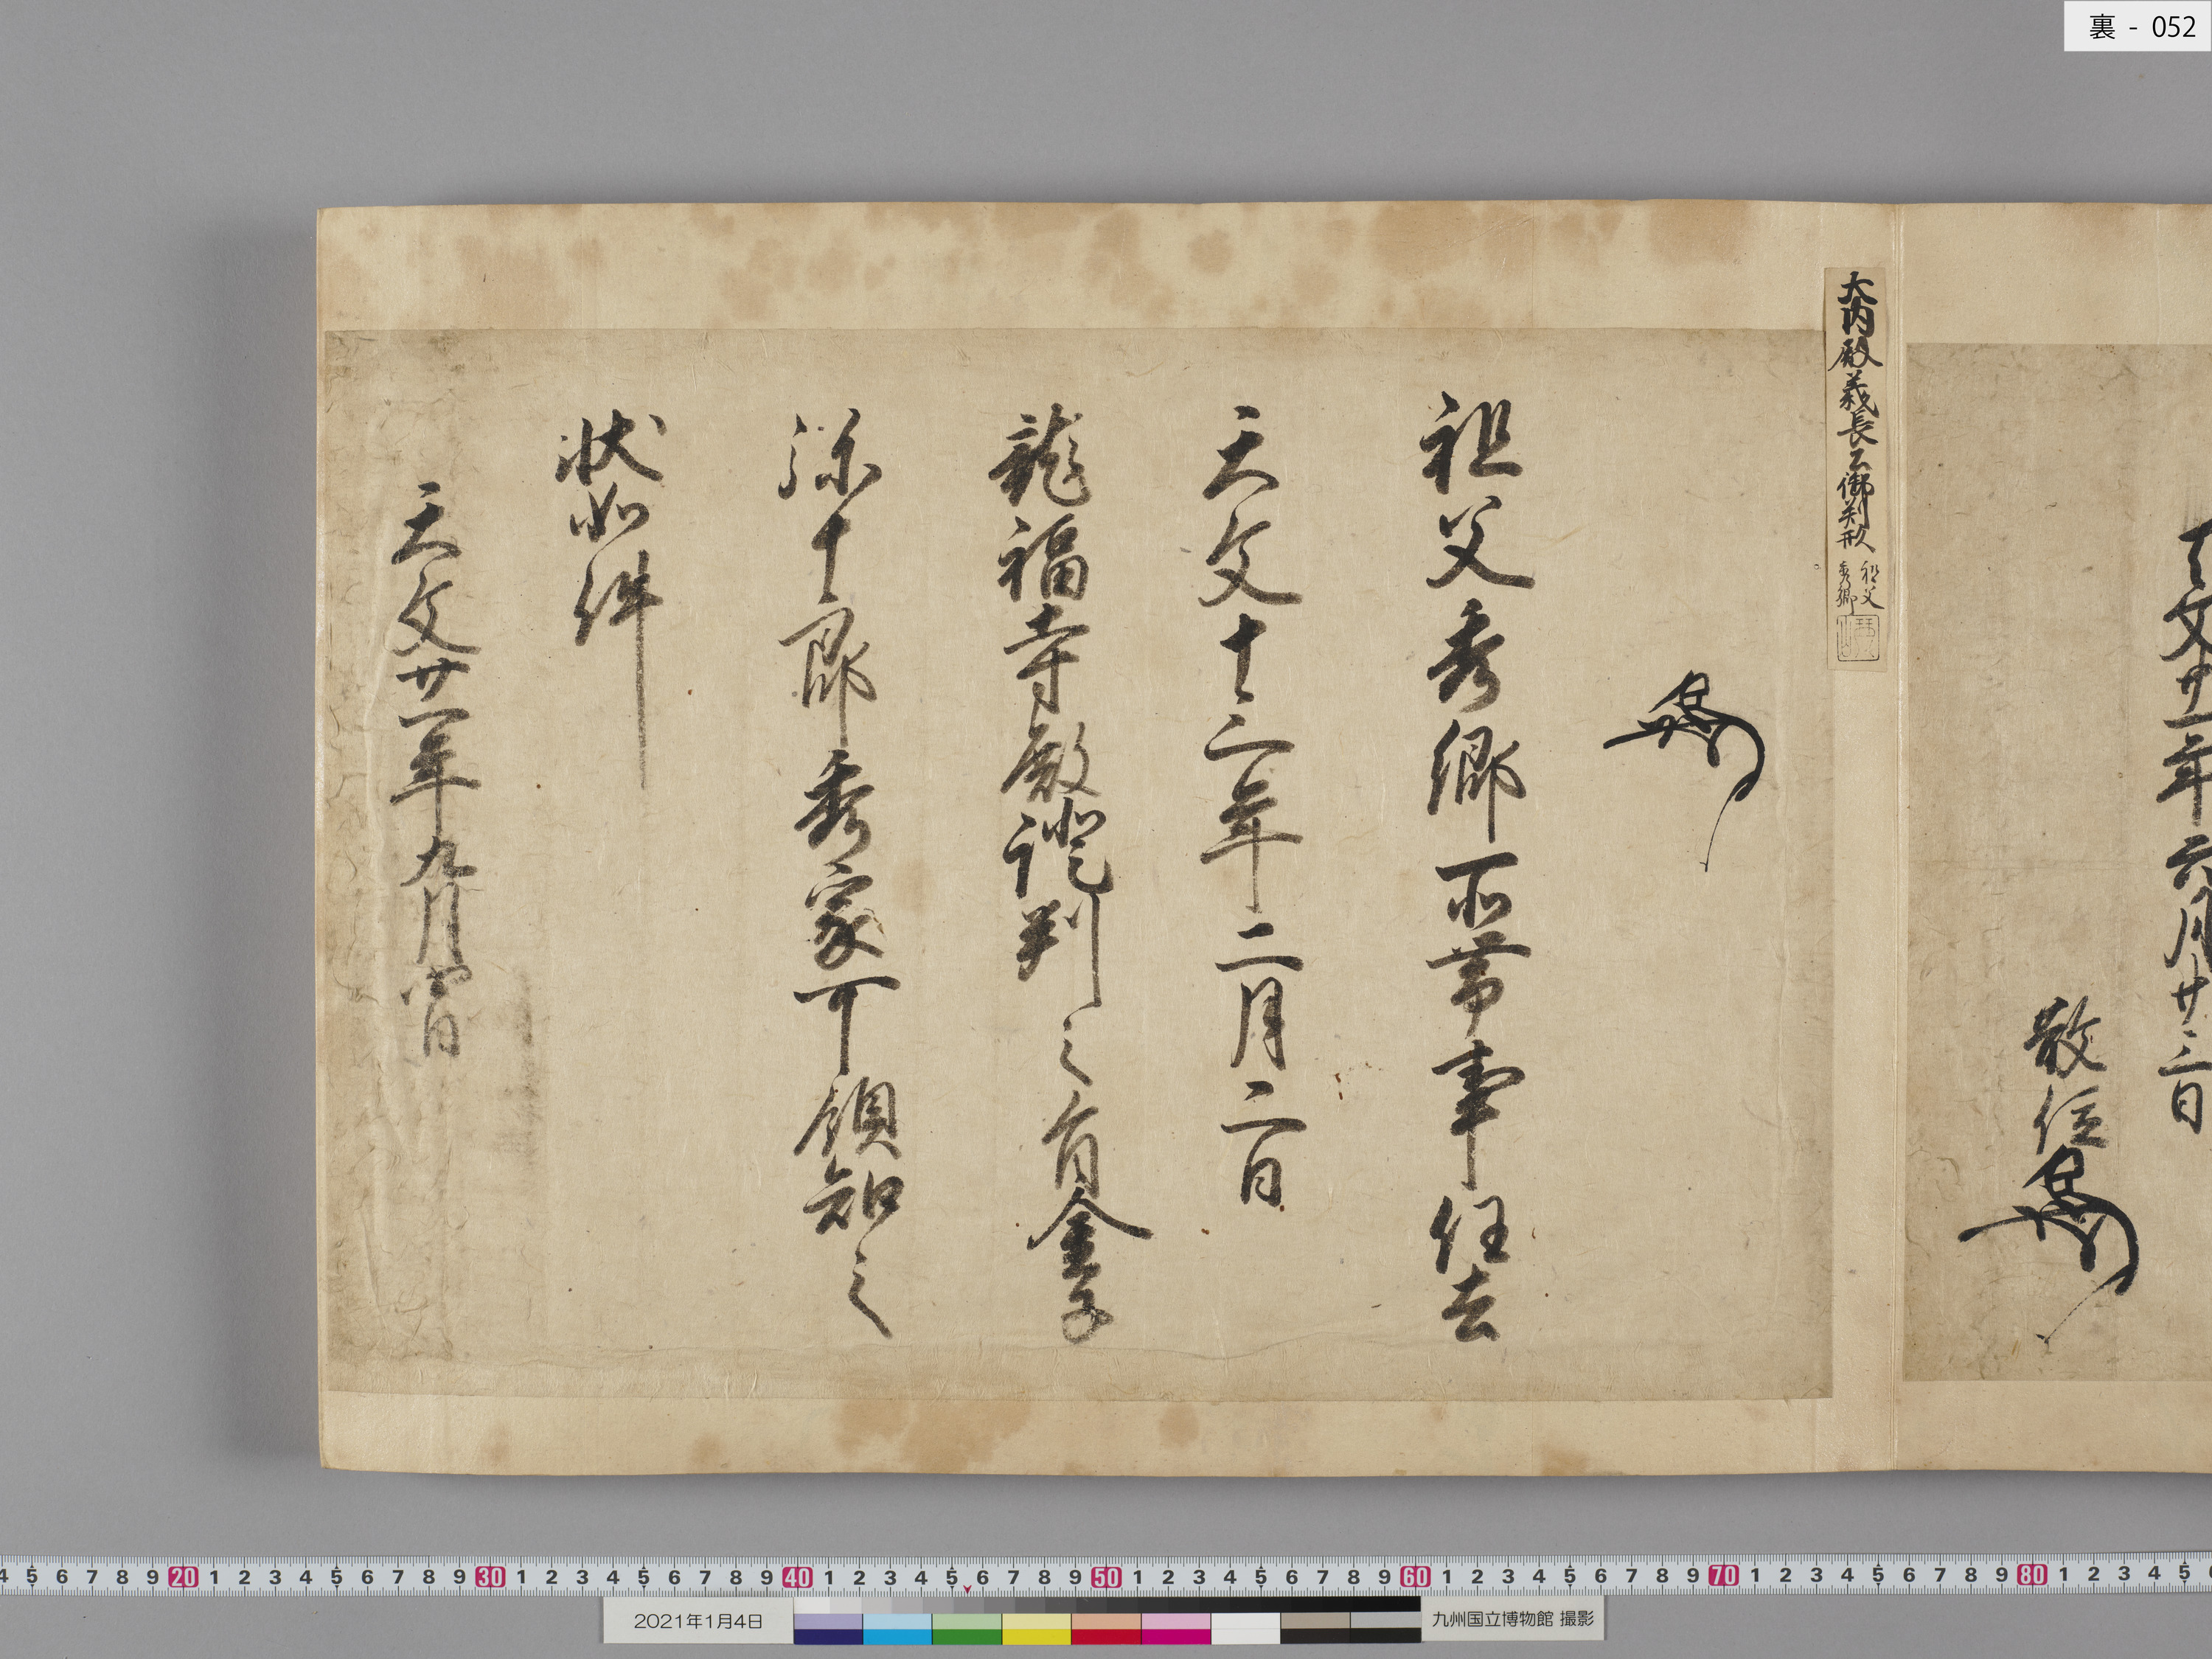 裏 - 052
天文廿一年六月廿三日
散位
大内殿義長公御判形
祖父
秀郷
祖父秀郷所帯事任去
天文十三年二月三日
龍福寺殿證判之旨金子
弥十郎秀家可領知之
状如件
天文廿一年九月四日
4 5 6 7 8 9 20 1 2 3 4 5 6 7 8 9 30 1 2 3 4 5 6 7 8 9 40 1 2 3 4 5 6 7 8 9 50 1 2 3 4 5 6 7 8 9 60 1 2 3 4 5 6 7 8 9 70 1 2 3 4 5 6 7 8 9 80 1 2 3 4 5
2021年1月4日
九州国立博物館 撮影